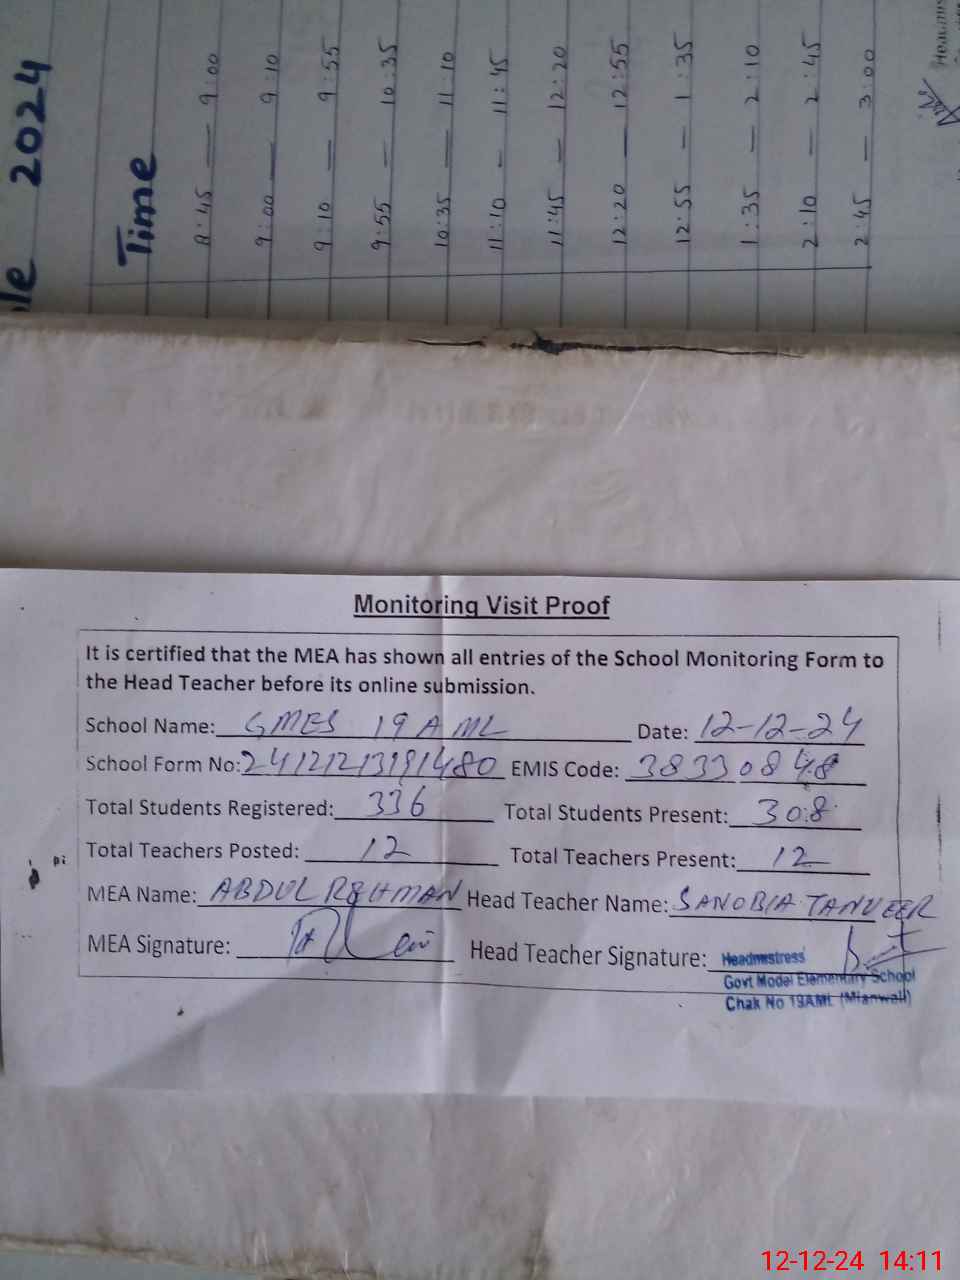 le 2024
Time
8:45 — 9:00
9:00 — 9:10
9:10 — 9:55
9:55 — 10:35
10:35 — 11:10
11:10 - 11:45
11:45 — 12:20
12:20 — 12:55
12:55 - 1:35
1:35 — 2:10
2:10 - 2:45
2:45 — 3:00
Monitoring Visit Proof
It is certified that the MEA has shown all entries of the School Monitoring Form to
the Head Teacher before its online submission.
School Name: GMES 19 A ML Date: 12-12-24
School Form No: EMIS Code: 38330848
Total Students Registered: 336 Total Students Present: 308
Total Teachers Posted: 12 Total Teachers Present: 12
MEA Name: ABDUL REHMAN Head Teacher Name: SANOBIA TANVEER
MEA Signature: Head Teacher Signature: Headmistress
Govt Model Elementary School
Chak No 19AML (Mianwali)
12-12-24 14:11